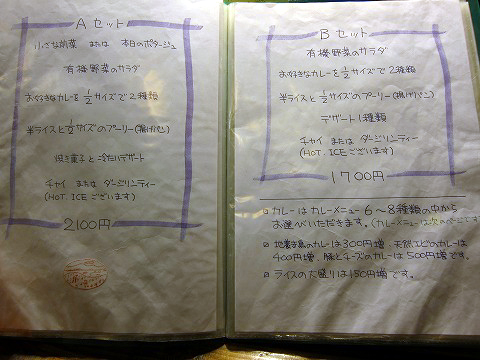 Aセット
小さな前菜 または 本日のポタージュ
有機野菜のサラダ
お好きなカレーを1/2サイズで2種類
半ライスと1/2サイズのプーリー(揚げパン)
焼き菓子と冷たいデザート
チャイ または ダージリンティー
(HOT, ICEございます)
2100円
Bセット
有機野菜のサラダ
お好きなカレーを1/2サイズで2種類
半ライスと1/2サイズのプーリー(揚げパン)
デザート1種類
チャイ または ダージリンティー
(HOT, ICEございます)
1700円
カレーはカレーメニュー6〜8種類の中から
お選びいただきます。(カレーメニューは次のページです
地養鳥のカレーは300円増、天然エビのカレーは
400円増、豚とチーズのカレーは500円増です。
ライスの大盛りは150円増です。